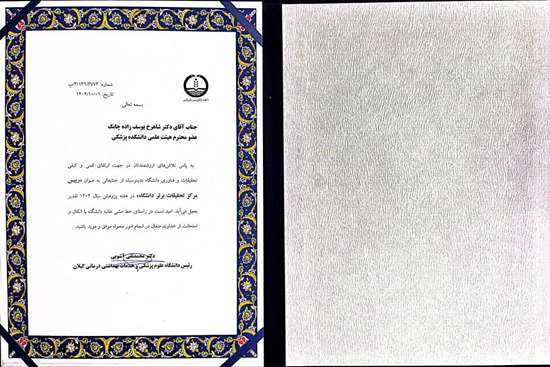 شماره: ۳/۱۴۹/۶۷۷۳/پ
تاریخ: ۱۴۰۲/۱۰/۰۱
بسمه تعالی
جناب آقای دکتر شاهرخ یوسف زاده چابک
عضو محترم هیئت علمی دانشکده پزشکی
به پاس تلاش‌های ارزشمندتان در جهت ارتقای کمی و کیفی
تحقیقات و فناوری دانشگاه بدینوسیله از جنابعالی به عنوان «رییس
مرکز تحقیقات برتر دانشگاه» در هفته پژوهش سال ۱۴۰۲ تقدیر
بعمل می‌آید. امید است در راستای خط مشی عالیه دانشگاه با اتکال و
استعانت از خداوند متعال در انجام امور محوله موفق و موید باشید.
دکتر محمدتقی آشوبی
رئیس دانشگاه علوم پزشکی و خدمات بهداشتی درمانی گیلان